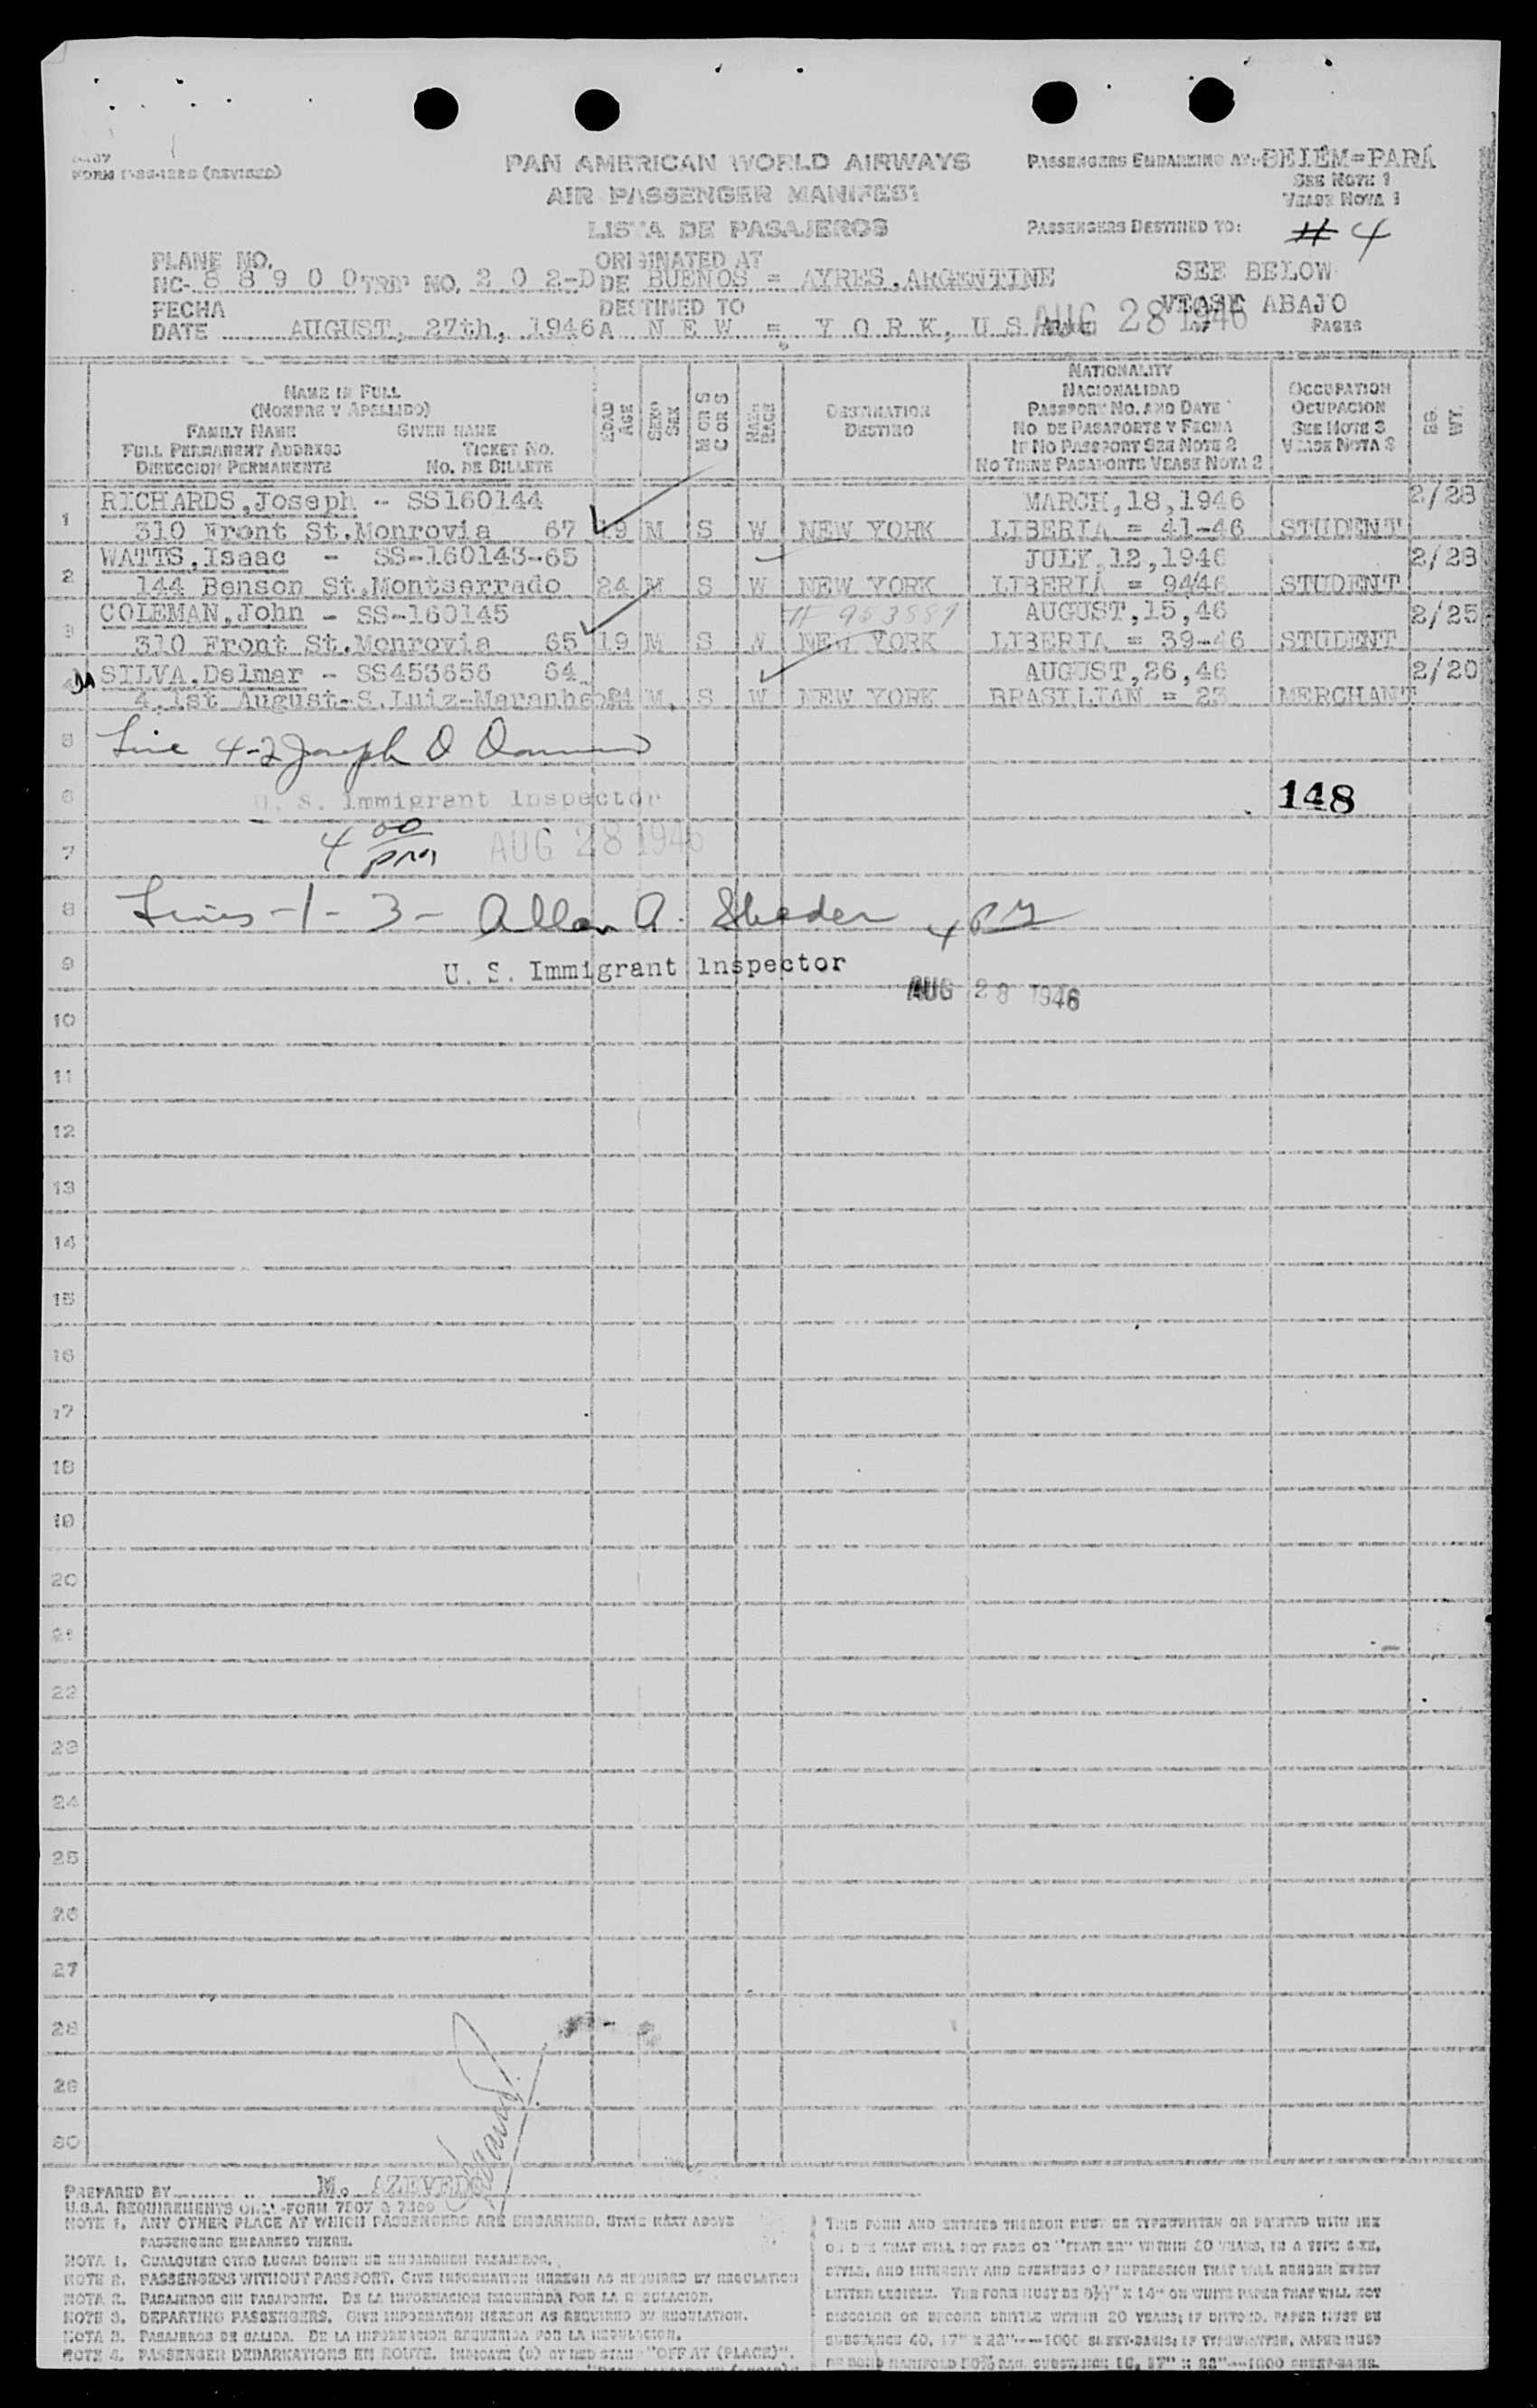 FORM (REVISED)
PAN AMERICAN WORLD AIRWAYS
AIR PASSENGER MANIFEST
LISTA DE PASAJEROS
PASSENGERS EMBARKING AT: BELEM=PARÁ
SEE NOTE 1
VEASE NOTA 1
PASSENGERS DESTINED TO: 4
SEE BELOW
VEASE ABAJO
PLANE NO.
NC- 8 8 9 0 0 TRIP NO. 2 0 2-D
ORIGINATED AT
DE BUENOS = AYRES, ARGENTINE
FECHA
DATE AUGUST, 27th, 1946
DESTINED TO
A N E W = Y O R K, U S
AUG 28 1946
PAGES
NAME IN FULL
(NOMBRE Y APELLIDO)
FAMILY NAME GIVEN NAME
FULL PERMANENT ADDRESS TICKET NO.
DIRECCION PERMANENTE NO. DE BILLETE
EDAD
AGE
SEXO
SEX
M OR S
C OR S
RACE
DESTINATION
DESTINO
NATIONALITY
NACIONALIDAD
PASSPORT NO. AND DATE
NO DE PASAPORTE Y FECHA
IF NO PASSPORT SEE NOTE 2
NO TIENE PASAPORTE VEASE NOTA 2
OCCUPATION
OCUPACION
SEE NOTE 3
VEASE NOTA 3
WT.
1 RICHARDS, Joseph - SS160144 MARCH, 18, 1946 2/28
310 Front St. Monrovia 67 19 M S W NEW YORK LIBERIA = 41-46 STUDENT
2 WATTS, Isaac - SS-160143-65 JULY, 12, 1946 2/28
144 Benson St. Montserrado 24 M S W NEW YORK LIBERIA = 94/46 STUDENT
3 COLEMAN, John - SS-160145 AUGUST, 15, 46 2/25
310 Front St. Monrovia 65 19 M S W NEW YORK LIBERIA = 39-46 STUDENT
4 SILVA, Delmar - SS453656 64 AUGUST, 26, 46 2/20
4, 1st August-S. Luiz-Maranh M. S W NEW YORK BRASILIAN = 23 MERCHANT
5 Line 4-2 Joseph D
6 U. S. Immigrant Inspector 148
7 4 00 PM AUG 28 1946
8 Lines -1-3- Allan A. 4 PM
9 U. S. Immigrant Inspector
AUG 28 1946
10
11
12
13
14
15
16
17
18
19
20
21
22
23
24
25
26
27
28
29
30
PREPARED BY M. AZEVEDO
U.S.A. REQUIREMENTS ONLY-FORM 7507 & 7509
NOTE 1. ANY OTHER PLACE AT WHICH PASSENGERS ARE EMBARKED, STATE NEXT ABOVE
PASSENGERS EMBARKED THERE.
NOTA 1. CUALQUIER OTRO LUGAR DONDE SE EMBARQUEN PASAJEROS.
NOTE 2. PASSENGERS WITHOUT PASSPORT. GIVE INFORMATION HEREON AS REQUIRED BY REGULATION
NOTA 2. PASAJEROS SIN PASAPORTE. DE LA INFORMACION REQUERIDA POR LA REGULACION.
NOTE 3. DEPARTING PASSENGERS. GIVE INFORMATION HEREON AS REQUIRED BY REGULATION.
NOTA 3. PASAJEROS DE SALIDA. DE LA INFORMACION REQUERIDA POR LA REGULACION.
NOTE 4. PASSENGER DEBARKATIONS EN ROUTE. INDICATE (S) BY RED STAR "OFF AT (PLACE)".
THIS FORM AND ENTRIES THEREON MUST BE TYPEWRITTEN OR PRINTED WITH INK
OR DYE THAT WILL NOT FADE OR "FEATHER" WITHIN 20 YEARS, IN A TYPE SIZE,
STYLE, AND INTENSITY AND EVENNESS OF IMPRESSION THAT WILL RENDER EVERY
LETTER LEGIBLE. THE FORM MUST BE 8½" X 14" ON WHITE PAPER THAT WILL NOT
DISCOLOR OR BECOME BRITTLE WITHIN 20 YEARS; IF DITTOED, PAPER MUST BE
SUBSTANCE 40, 17" X 22"—1000 SHEET-BASIS; IF TYPEWRITTEN, PAPER MUST
BE BOND MANIFOLD 50% RAG, SUBSTANCE 16, 17" X 22"—1000 SHEET-BASIS.